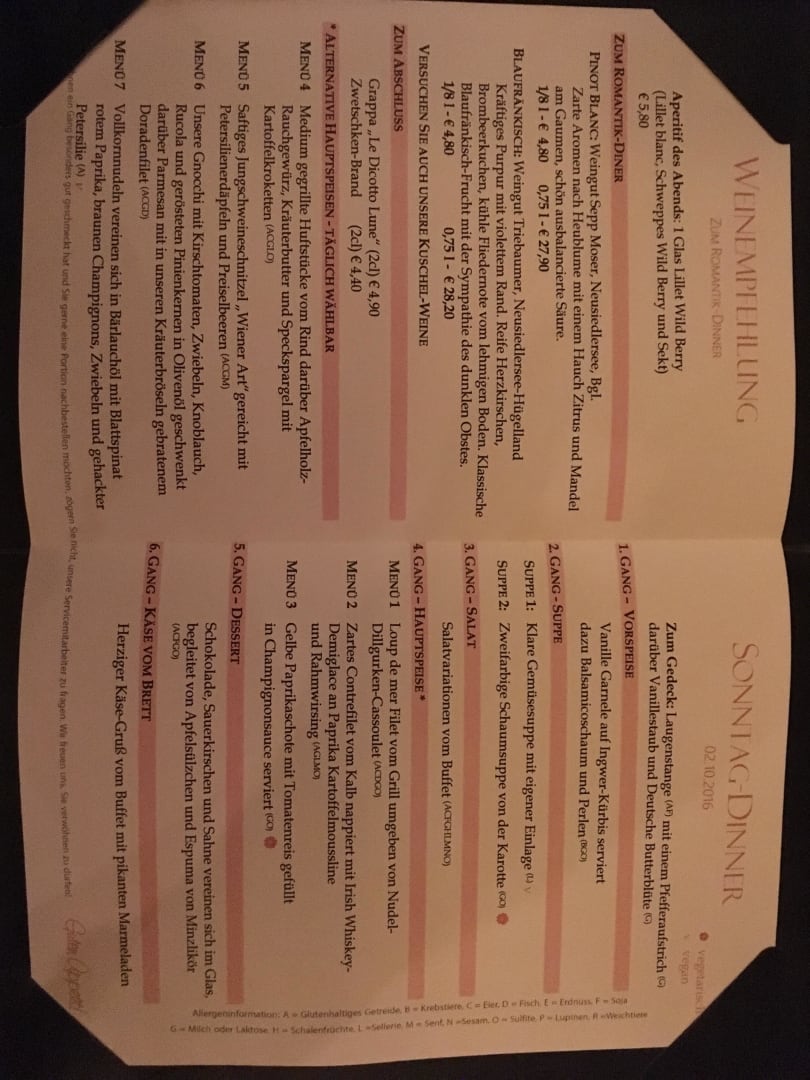 WEINEMPFEHLUNG
ZUM ROMANTIK-DINNER
Aperitif des Abends: 1 Glas Lillet Wild Berry
(Lillet blanc, Schweppes Wild Berry und Sekt)
€ 5,80
ZUM ROMANTIK-DINER
PINOT BLANC: Weingut Sepp Moser, Neusiedlersee, Bgl.
Zarte Aromen nach Heublume mit einem Hauch Zitrus und Mandel
am Gaumen, schön ausbalancierte Säure.
1/8 l - € 4,80 0,75 l - € 27,90
BLAUFRÄNKISCH: Weingut Triebaumer, Neusiedlersee-Hügelland
Kräftiges Purpur mit violettem Rand. Reife Herzkirschen,
Brombeerkuchen, kühle Fliedernote vom lehmigen Boden. Klassische
Blaufränkisch-Frucht mit der Sympathie des dunklen Obstes.
1/8 l - € 4,80 0,75 l - € 28,20
VERSUCHEN SIE AUCH UNSERE KUSCHEL-WEINE
ZUM ABSCHLUSS
Grappa „Le Dicotto Lune“ (2cl) € 4,90
Zwetschken-Brand (2cl) € 4,40
* ALTERNATIVE HAUPTSPEISEN - TÄGLICH WÄHLBAR
MENÜ 4 Medium gegrillte Huftstücke vom Rind darüber Apfelholz-
Rauchgewürz, Kräuterbutter und Speckspargel mit
Kartoffelkroketten (ACGLO)
MENÜ 5 Saftiges Jungschweineschnitzel „Wiener Art“ gereicht mit
Petersilienerdäpfeln und Preiselbeeren (ACGM)
MENÜ 6 Unsere Gnocchi mit Kirschtomaten, Zwiebeln, Knoblauch,
Rucola und gerösteten Pinienkernen in Olivenöl geschwenkt
darüber Parmesan mit in unseren Kräuterbröseln gebratenem
Doradenfilet (ACGD)
MENÜ 7 Vollkornnudeln vereinen sich in Bärlauchöl mit Blattspinat
rotem Paprika, braunen Champignons, Zwiebeln und gehackter
Petersilie (A)
SONNTAG-DINNER
02.10.2016
vegetarisch
v vegan
Zum Gedeck: Laugenstange (AF) mit einem Pfefferaufstrich (G)
darüber Vanillestaub und Deutsche Butterblüte (G)
1. GANG – VORSPEISE
Vanille Garnele auf Ingwer-Kürbis serviert
dazu Balsamicoschaum und Perlen (BGO)
2. GANG - SUPPE
SUPPE 1: Klare Gemüsesuppe mit eigener Einlage (L) v
SUPPE 2: Zweifarbige Schaumsuppe von der Karotte (GO)
3. GANG – SALAT
Salatvariationen vom Buffet (ACFGHLMNO)
4. GANG – HAUPTSPEISE *
MENÜ 1 Loup de mer Filet vom Grill umgeben von Nudel-
Dillgurken-Cassoulet (ACDGO)
MENÜ 2 Zartes Contrefilet vom Kalb nappiert mit Irish Whiskey-
Demiglace an Paprika Kartoffelmoussline
und Rahmwirsing (AGLMO)
MENÜ 3 Gelbe Paprikaschote mit Tomatenreis gefüllt
in Champignonsauce serviert (GO)
5. GANG – DESSERT
Schokolade, Sauerkirschen und Sahne vereinen sich im Glas,
begleitet von Apfelsülzchen und Espuma von Minzlikör
(ACFGO)
6. GANG – KÄSE VOM BRETT
Herziger Käse-Gruß vom Buffet mit pikanten Marmeladen
Allergeninformation: A = Glutenhaltiges Getreide, B = Krebstiere, C = Eier, D = Fisch, E = Erdnuss, F = Soja
G = Milch oder Laktose, H = Schalenfrüchte, L =Sellerie, M = Senf, N =Sesam, O = Sulfite, P = Lupinen, R =Weichtiere
ein Gang besonders gut geschmeckt hat und Sie gerne eine Portion nachbestellen möchten, zögern Sie nicht, unsere Servicemitarbeiter zu fragen. Wir freuen uns, Sie verwöhnen zu dürfen!
Guten Appetit!